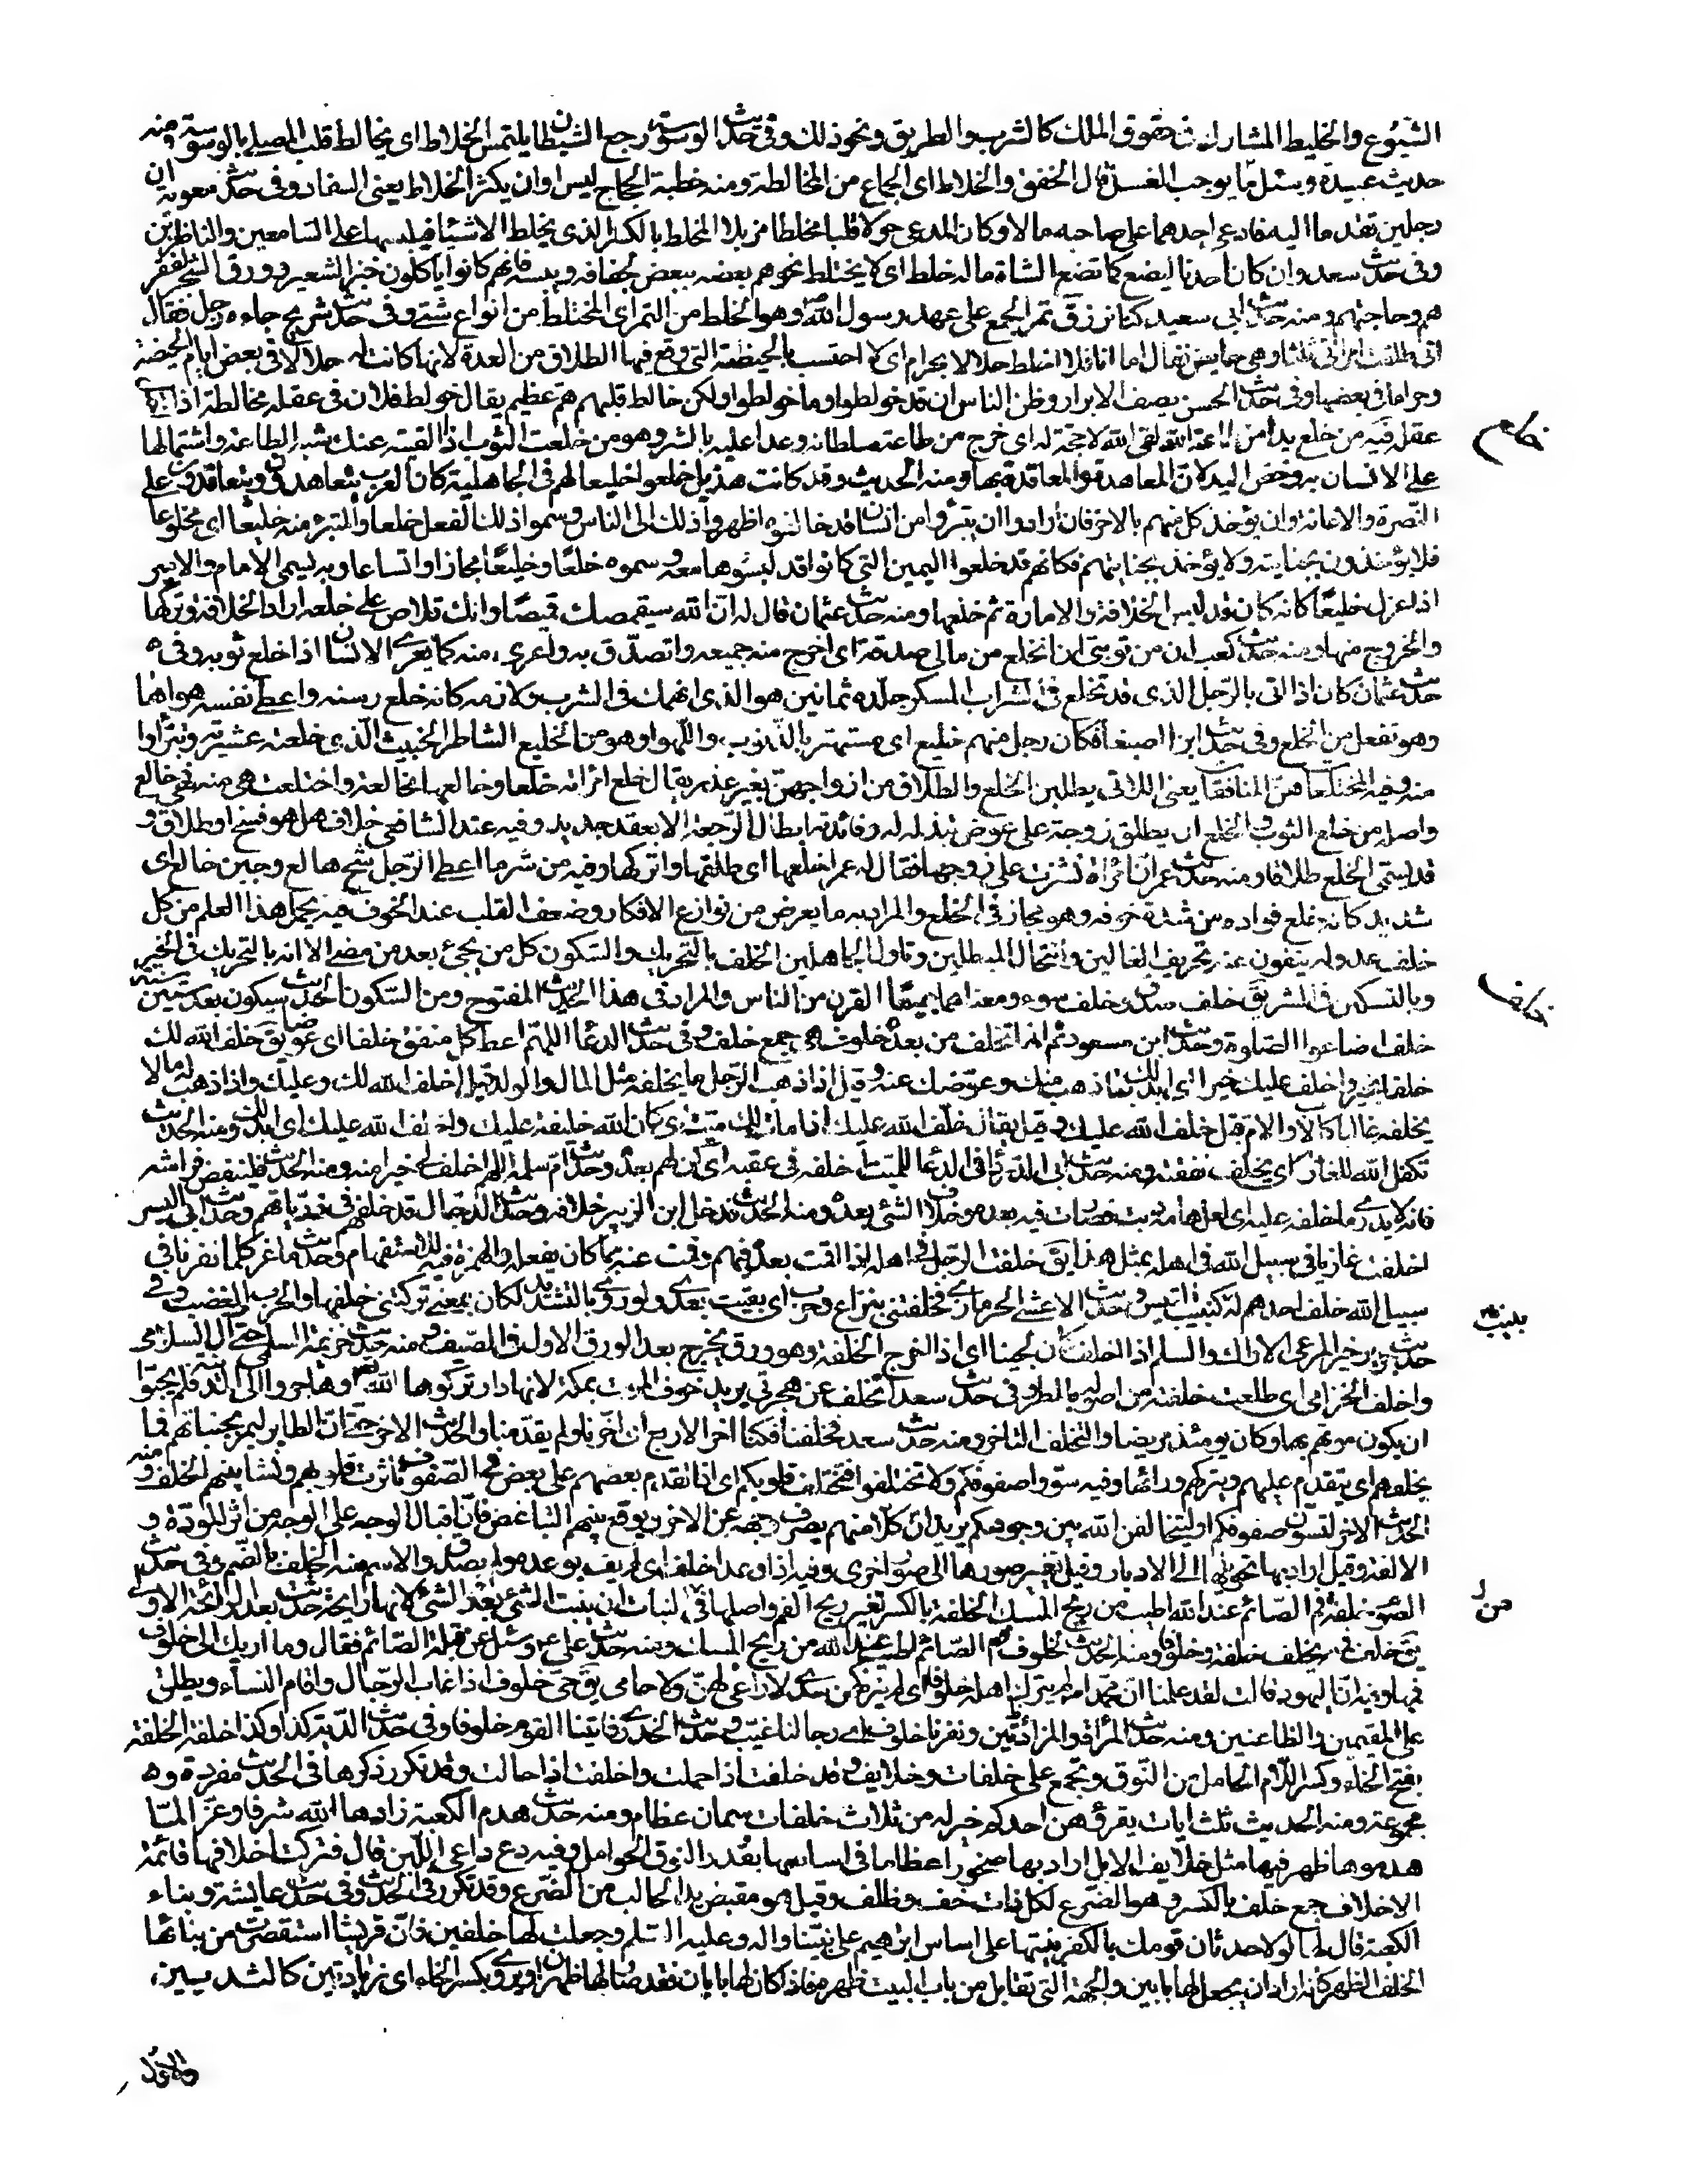 الشيوع والخليط المشارك في حقوق الملك كالشرب والطريق ونحو ذلك وفي حديث الوسوسة رجع الشيطان يلتمس الخلاط اي يخالط قلب المصلي بالوسوسة ومنه
حديث عبيدة وسئل ما يوجب الغسل قال الخفق والخلاط اي الجماع من المخالطة ومنه خطبة الحجاج ليس اوان يكثر الخلاط يعني السفاد وفي حديث معوية ان
رجلين تقدما اليه فادعى احدهما على صاحبه مالا وكان المدعى حولا قلبا مخلطا مزيلا المخلط بالكسر الذي يخلط الاشياء فيلبسها على السامعين والناظرين
وفي حديث سعد وان كان احدنا ليضع كما تضع الشاة ماله خلط اي لا يختلط نجوهم بعضه ببعض لجفافه ويبسه فانهم كانوا ياكلون خبز الشعير وورق الشجر لفقر
هم وحاجتهم ومنه حديث ابي سعيد كنا نرزق تمر الجمع على عهد رسول الله وهو الخلط من التمر اي المختلط من انواع شتى وفي حديث شريح جاءه رجل فقال
اني طلقت امراتي ثلثا وهي حايض فقال اما انا فلا اخلط حلالا بحرام اي لا احتسب بالحيضة التي وقع فيها الطلاق من العدة لانها كانت له حلالا في بعض ايام الحيضة
وحراما في بعضها وفي حديث الحسن يصف الابرار وظن الناس ان قد خولطوا وما خولطوا ولكن خالط قلبهم هم عظيم يقال خولط فلان في عقله مخالطة اذا
خلع
عقله فيه من خلع يدا من طاعة الله لقي الله لا حجة له اي خرج من طاعة سلطانه وعدا عليه بالشر وهو من خلعت الثوب اذا القيته عنك شبه الطاعة واشتمالها
على الانسان به وخص اليد لان المعاهدة والمعاقدة بها ومنه الحديث وقد كانت هذيل خلعوا خليعا لهم في الجاهلية كان العرب يتعاهدون ويتعاقدون على
النصرة والاعانة وان يؤخذ كل منهم بالاخر فان ارادوا ان يتبرؤا من انسان قد حالفوه اظهروا ذلك الى الناس وسموا ذلك الفعل خلعا والمتبرء منه خليعا اي مخلوعا
فلا يؤخذون بجنايته ولا يؤخذ بجنايتهم فكانهم قد خلعوا اليمين التي كانوا قد لبسوها معه وسموه خلعا وخليعا مجازا واتساعا وبه يسمى الامام والامير
اذا عزل خليعا كانه كان قد لبس الخلافة والامارة ثم خلعها ومنه حديث عثمان قال له ان الله سيقمصك قميصا وانك تلاص على خلعه اراد الخلافة وتركها
والخروج منها ومنه حديث كعب ان من توبتي ان انخلع من مالي صدقة اي اخرج منه جميعه واتصدق به واعرى منه كما يعرى الانسان اذا خلع ثوبه وفي
حديث عثمان كان اذا اتي بالرجل الذي قد تخلع في الشراب المسكر جلده ثمانين هو الذي انهمك في الشرب ولازمه كانه خلع رسنه واعطى نفسه هواها
وهو تفعل من الخلع وفي حديث ابن الصبغاء فكان رجل منهم خليع اي مستهتر بالذنوب واللهو او هو من الخليع الشاطر الخبيث الذي خلعته عشيرته وتبرأوا
منه وفيه المختلعات هن المنافقات يعني اللاتي يطلبن الخلع والطلاق من ازواجهن بغير عذر يقال خلع امرأته خلعا وخالعها مخالعة واختلعت هي منه فهي خالع
واصله من خلع الثوب والخلع ان يطلق زوجته على عوض تبذله له وفائدته ابطال الرجعة الا بعقد جديد وفيه عند الشافعي خلاف هل هو فسخ او طلاق و
قد يسمى الخلع طلاقا ومنه حديث عمر ان امرأة نشزت على زوجها فقال له عمر اخلعها اي طلقها واتركها وفيه من شر ما اعطي الرجل شح هالع وجبن خالع اي
شديد كانه يخلع فواده من شدة خوفه وهو مجاز في الخلع والمراد به ما يعرض من نوازع الافكار وضعف القلب عند الخوف فيه يحمل هذا العلم من كل
خلف
خلف عدوله ينفون عنه تحريف الغالين وانتحال المبطلين وتاول الجاهلين الخلف بالتحريك والسكون كل من يجئ بعد من مضى الا انه بالتحريك في الخير
وبالتسكين في الشر يق خلف صدق وخلف سوء ومعناهما جميعا القرن من الناس والمراد في هذا الحديث المفتوح ومن السكون الحديث سيكون بعد ستين سنة
خلف اضاعوا الصلوة وحديث ابن مسعود ثم انها تخلف من بعده خلوف هي جمع خلف وفي حديث الدعاء اللهم اعط كل منفق خلفا اي عوضا يق خلف الله لك
خلفا بخير واخلف عليك خيرا اي ابدلك بما ذهب منك وعوضك عنه وقيل اذا ذهب للرجل ما يخلفه مثل المال والولد قيل اخلف الله لك وعليك واذا ذهب له ما لا
يخلفه غالبا كالاب والام قيل خلف الله عليك وقيل يقال خلف الله عليك اذا مات لك ميت اي كان الله خليفة عليك واخلف الله عليك اي ابدلك ومنه الحديث
تكفل الله للغازي ان يخلف نفقته ومنه حديث ابي الدرداء في الدعاء للميت اخلفه في عقبه اي كن لهم بعده وحديث ام سلمة اللهم اخلف لي خيرا منه ومنه الحديث فلينفض فراشه
فانه لا يدري ما خلفه عليه اي لعل هامة دبت فصارت فيه بعده وخلاف الشئ بعده ومنه الحديث فدخل ابن الزبير خلافه وحديث الدجال قد خلفهم في ذرياتهم وحديث ابي اليسر
اخلفت غازيا في سبيل الله في اهله بمثل هذا يق خلفت الرجل في اهله اذا اقمت بعده فيهم وقمت عنه بما كان يفعله والهمزة فيه للاستفهام وحديث ماعز كلما نفرنا في
بنبيب
سبيل الله خلف احدهم له نبيب كنبيب التيس وحديث الاعشى الحرمازي فخلفتني بنزاع وحرب اي بقيت بعدي ولو روي بالتشديد لكان بمعنى تركتني خلفها والحرب الغضب وفي
حديث جرير خير المرعى الاراك والسلم اذا اخلف كان لجينا اي اذا اخرج الخلفة وهو ورق يخرج بعد الورق الاول في الصيف ومنه حديث خزيمة السلمي حتى آل السلامى
واخلف الخزامى اي طلعت خلفته من اصوله بالمطر وفي حديث سعد اتخلف عن هجرتي يريد خوف الموت بمكة لانها دار تركوها لله وهاجروا الى المدينة فلم يحبوا
ان يكون موتهم بها وكان يومئذ مريضا والتخلف التاخر ومنه حديث سعد فخلفنا فكنا اخر الاربع اي اخرنا ولم يقدمنا والحديث الاخر حتى ان الطاير ليمر بجنباتهم فما
يخلفهم اي يتقدم عليهم ويتركهم وراءه وفيه سووا صفوفكم ولا تختلفوا فتختلف قلوبكم اي اذا تقدم بعضهم على بعض في الصفوف تاثرت قلوبهم ونشا بينهم الخلف ومنه
الحديث الاخر لتسون صفوفكم او ليخالفن الله بين وجوهكم يريد ان كلا منهم يصرف وجهه عن الاخر ويوقع بينهم التباغض فان اقبال الوجه على الوجه من اثر المودة و
الالفة وقيل اراد بها تحويلها الى الادبار وقيل تغيير صورها الى صور اخرى وفيه اذا وعد اخلف اي لم يف بوعده ولم يصدق والاسم منه الخلف بالضم وفي حديث
من
الصوم خلفة فم الصائم عند الله اطيب من ريح المسك الخلفة بالكسر تغير ريح الفم واصلها في النبات ان ينبت الشئ بعد الشئ لانها رايحة حدثت بعد الرائحة الاولى
يق خلف فمه يخلف خلفة وخلوفا ومنه الحديث لخلوف فم الصائم اطيب عند الله من ريح المسك ومنه حديث علي ع وسئل عن قبلة الصائم فقال وما اربك الى خلوف
فيها وفيه ان اليهود قالت لقد علمنا ان محمدا لم يترك اهله خلوفا اي لم يتركهن سدى لا راعي لهن ولا حامي يق حي خلوف اذا غاب الرجال واقام النساء ويطلق
على المقيمين والظاعنين ومنه حديث المرأة والمزادتين ونفرنا خلوف اي رجالنا غيب وحديث الخدري فاتينا القوم خلوفا وفي حديث الدية كذا وكذا خلفة الخلفة
بفتح الخاء وكسر اللام الحامل من النوق وتجمع على خلفات وخلايف وقد خلفت اذا حملت واخلفت اذا حالت وقد تكرر ذكرها في الحديث مفردة و
مجموعة ومنه الحديث ثلث ايات يقرؤهن احدكم خير له من ثلاث خلفات سمان عظام ومنه حديث هدم الكعبة زادها الله شرفا وعزا لما
هدموها ظهر فيها مثل خلايف الابل اراد بها صخورا عظاما في اساسها بقدر النوق الحوامل وفيه دع داعي اللبن قال فتركت اخلافها قائمة
الاخلاف جمع خلف بالكسر وهو الضرع لكل ذات خف وظلف وقيل هو مقبض يد الحالب من الضرع وقد تكرر في الحديث وفي حديث عايشة وبناء
الكعبة قال لها لولا حدثان قومك بالكفر بنيتها على اساس ابرهيم على نبينا واله وعليه السلم وجعلت لها خلفين فان قريشا استقصرت من بنائها
الخلف الظهر كانه اراد ان يجعل لها بابين والجهة التي تقابل من باب البيت ظهره فاذا كان لها بابان فقد صار لها ظهران ويروى بكسر الخاء اي زيادتين كالثديين
والاول